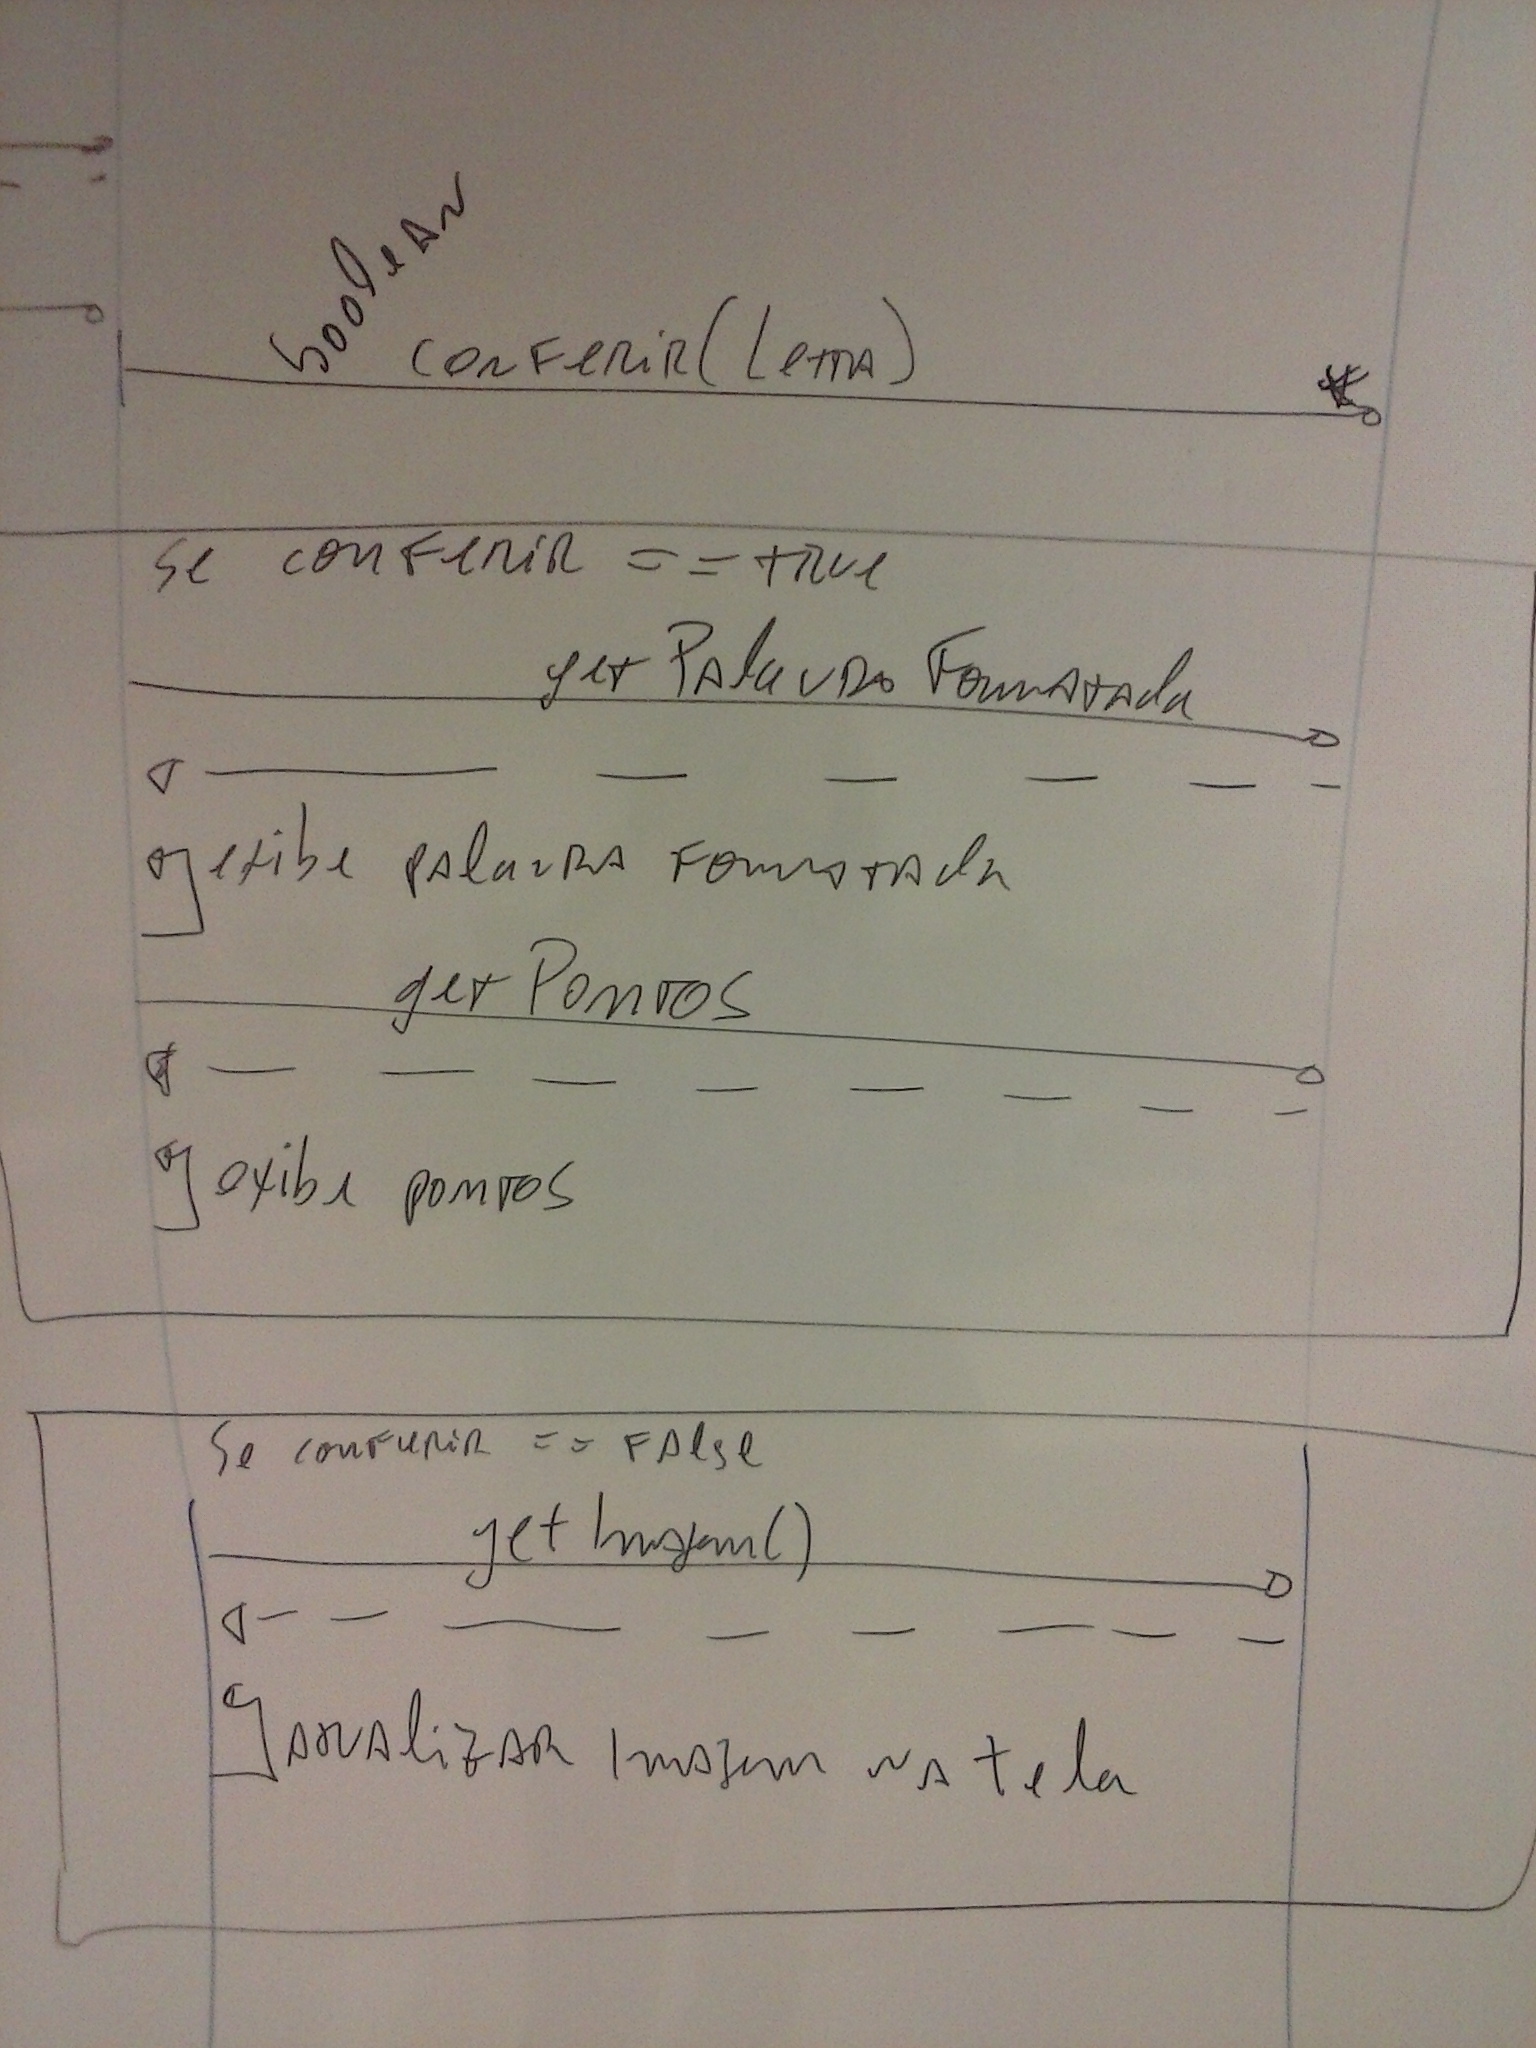 boolean
conferir(Letra)
Se conferir == true
getPalavraFormatada
exibe palavra formatada
getPontos
exibe pontos
Se conferir == false
getImagem()
Atualizar Imagem na tela